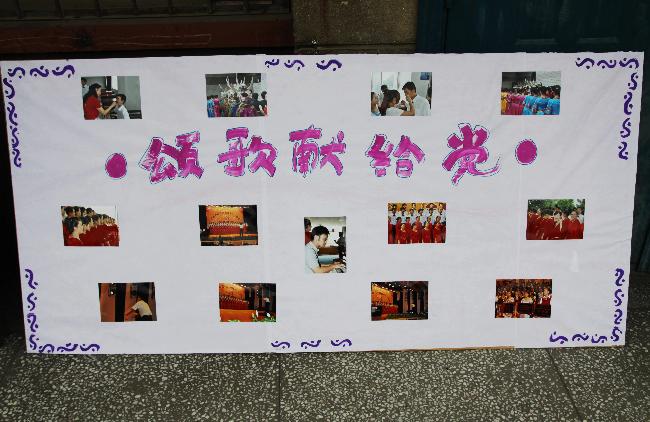 •颂歌献给党•